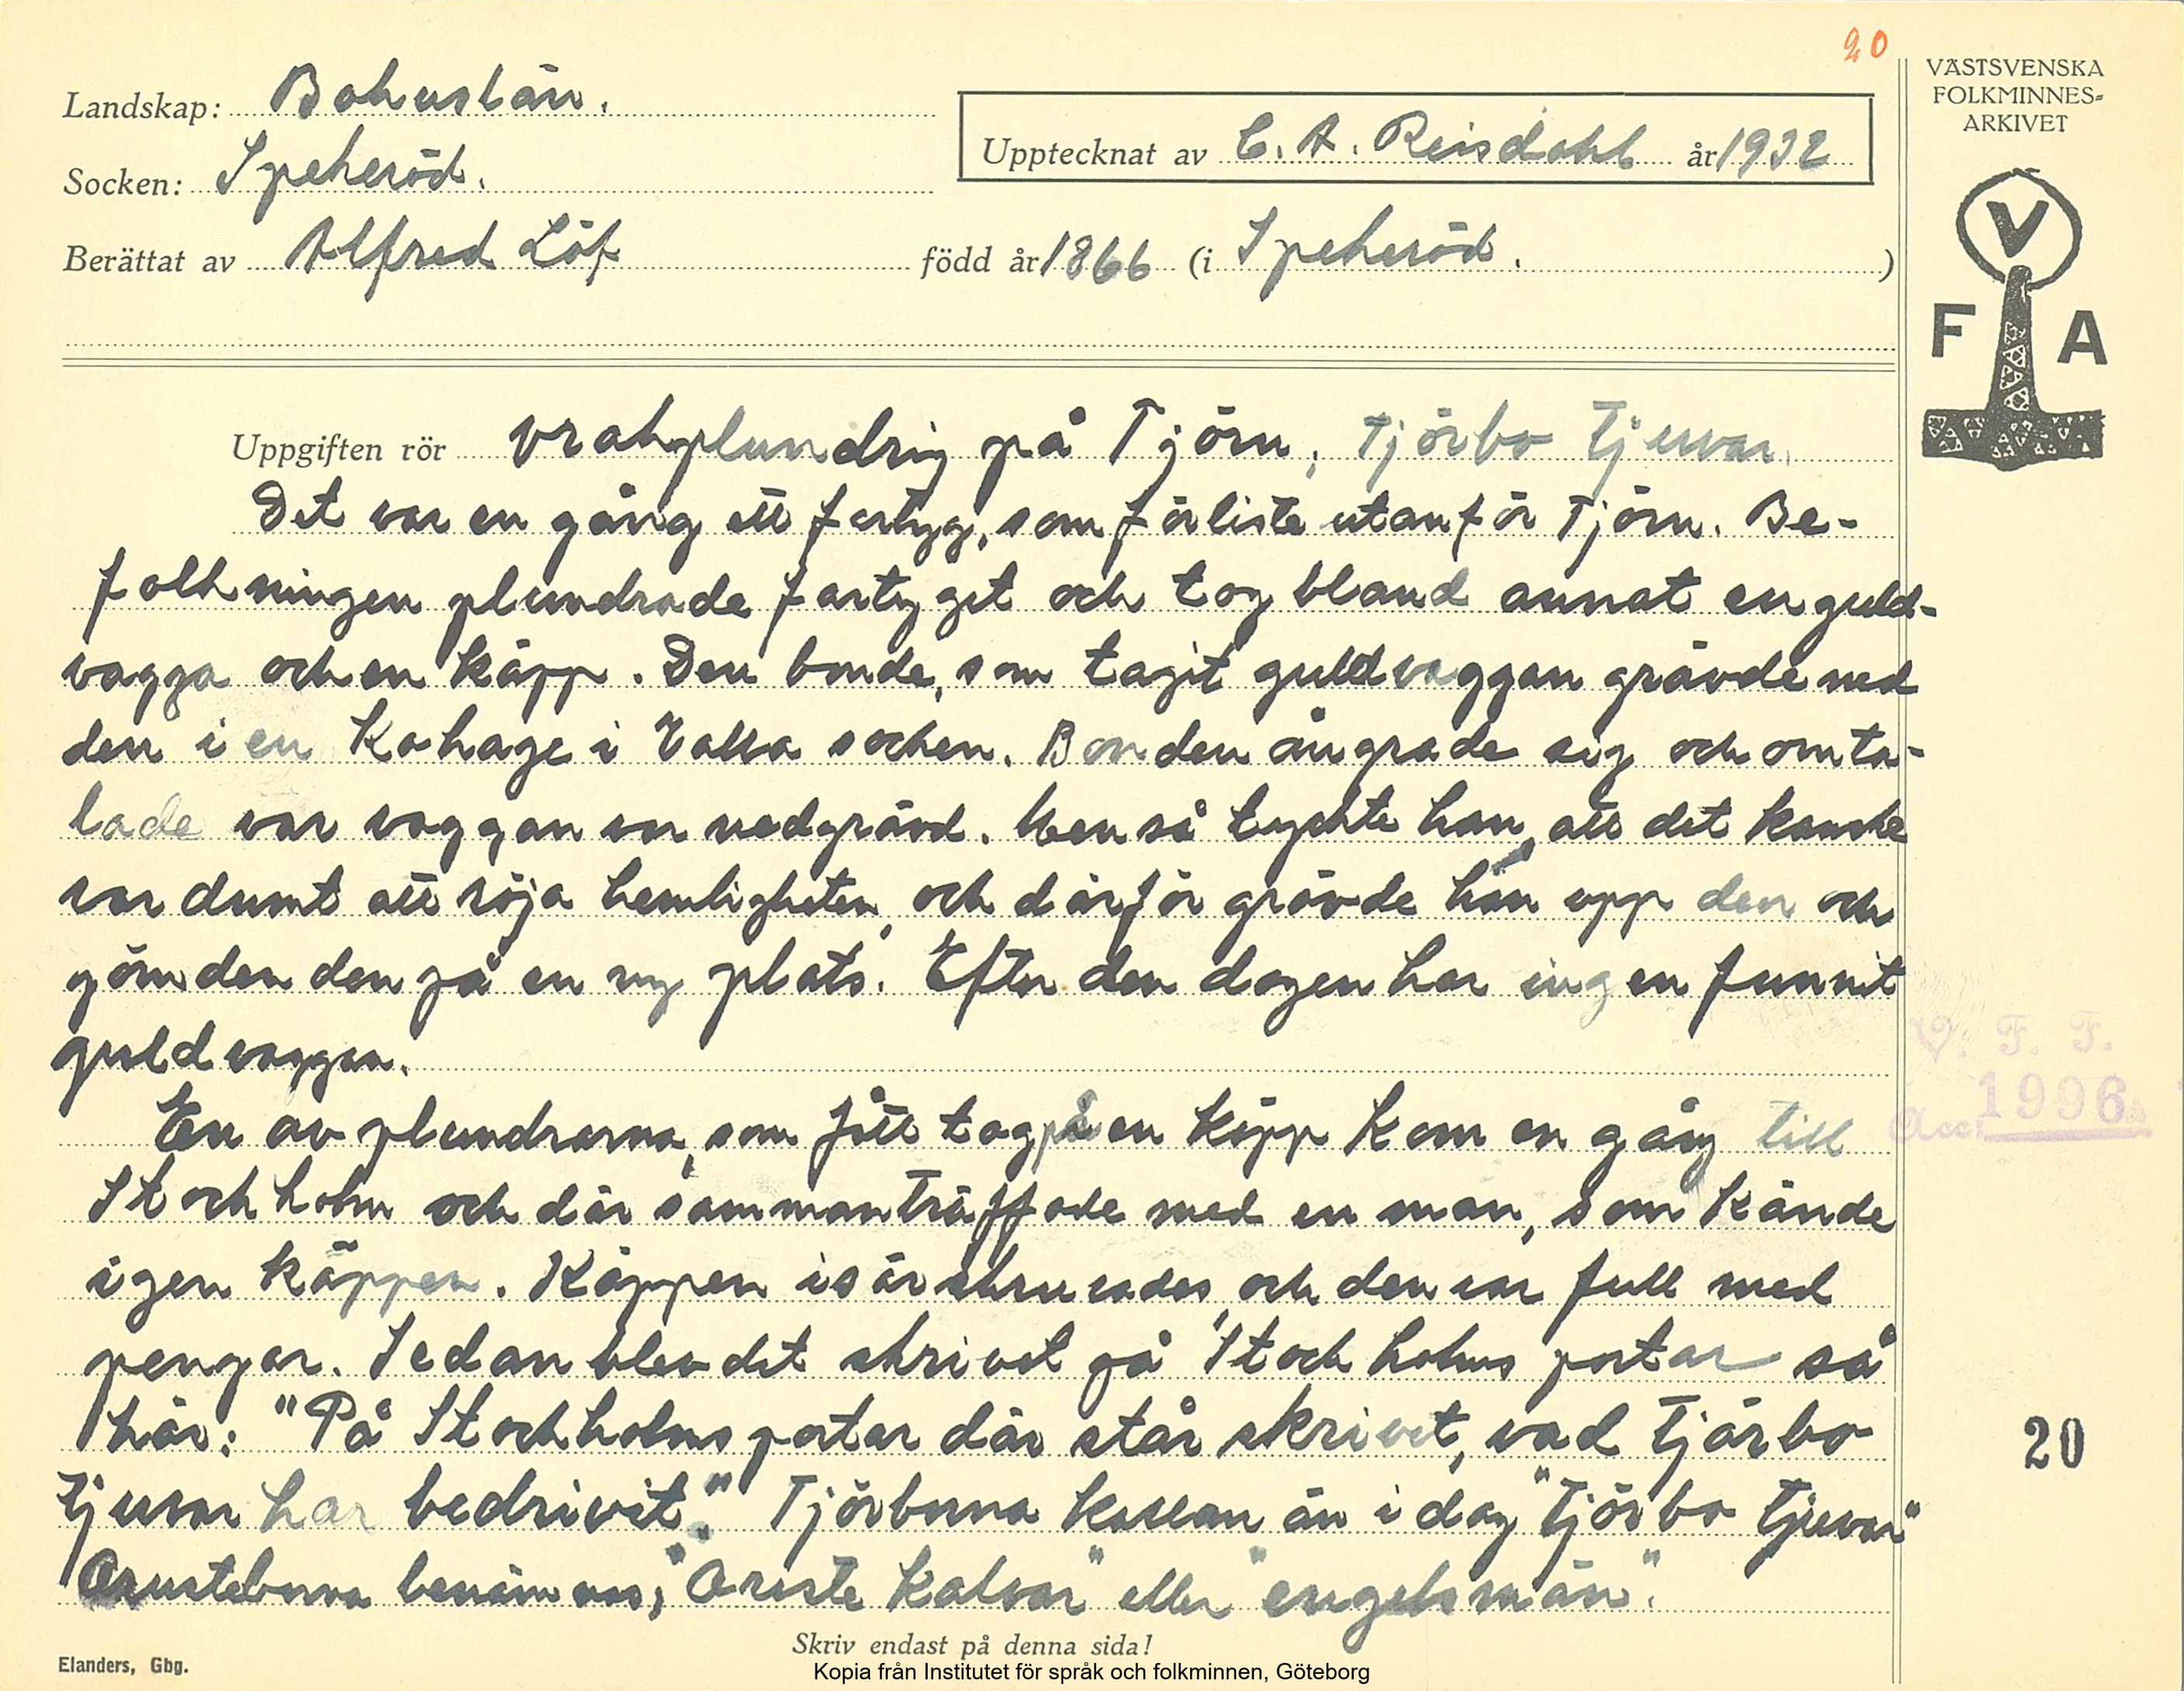 20
VÄSTSVENSKA
FOLKMINNES=
ARKIVET
Landskap: Bohuslän.
Upptecknat av C. A. Reisdahl år 1932
Socken: Spekeröd.
Berättat av Alfred Löf född år 1866 (i Spekeröd. )
V
F A
Uppgiften rör vrakplundrig på Tjörn, Tjörbo Tjuvar.
Det var en gång ett fartyg, som förliste utanför Tjörn. Be-
folkningen plundrade fartyget och tog bland annat en guld-
vagga och en käpp. Den bonde, som tagit guldvaggan grävde ned
den i en Kohage i Valla socken. Bonden ångrade sig och omta-
lade var vaggan var nedgrävd. Men så tyckte han, att det kanske
var dumt att röja hemligheten, och därför grävde han upp den och
gömden den på en ny plats. Efter den dagen har ingen funnit
guldvaggan.
En av plundrarna, som fått tag på en Käpp kom en gång till
Stockholm och där sammanträffade med en man, som kände
igen käppen. Käppen isärskruvades, och den var full med
pengar. Sedan blev det skrivet på Stockholms portar så
här: "På Stockholms portar där står skrivet, vad Tjörbo
tjuvar har bedrivit." Tjörborna kallan än i dag "Tjörbo Tjuvar"
Orusteborna benämnas, "Oruste Kalvar" eller "engelsmän".
V. F. F.
Acc: 1996
20
Skriv endast på denna sida!
Elanders, Gbg.
Kopia från Institutet för språk och folkminnen, Göteborg